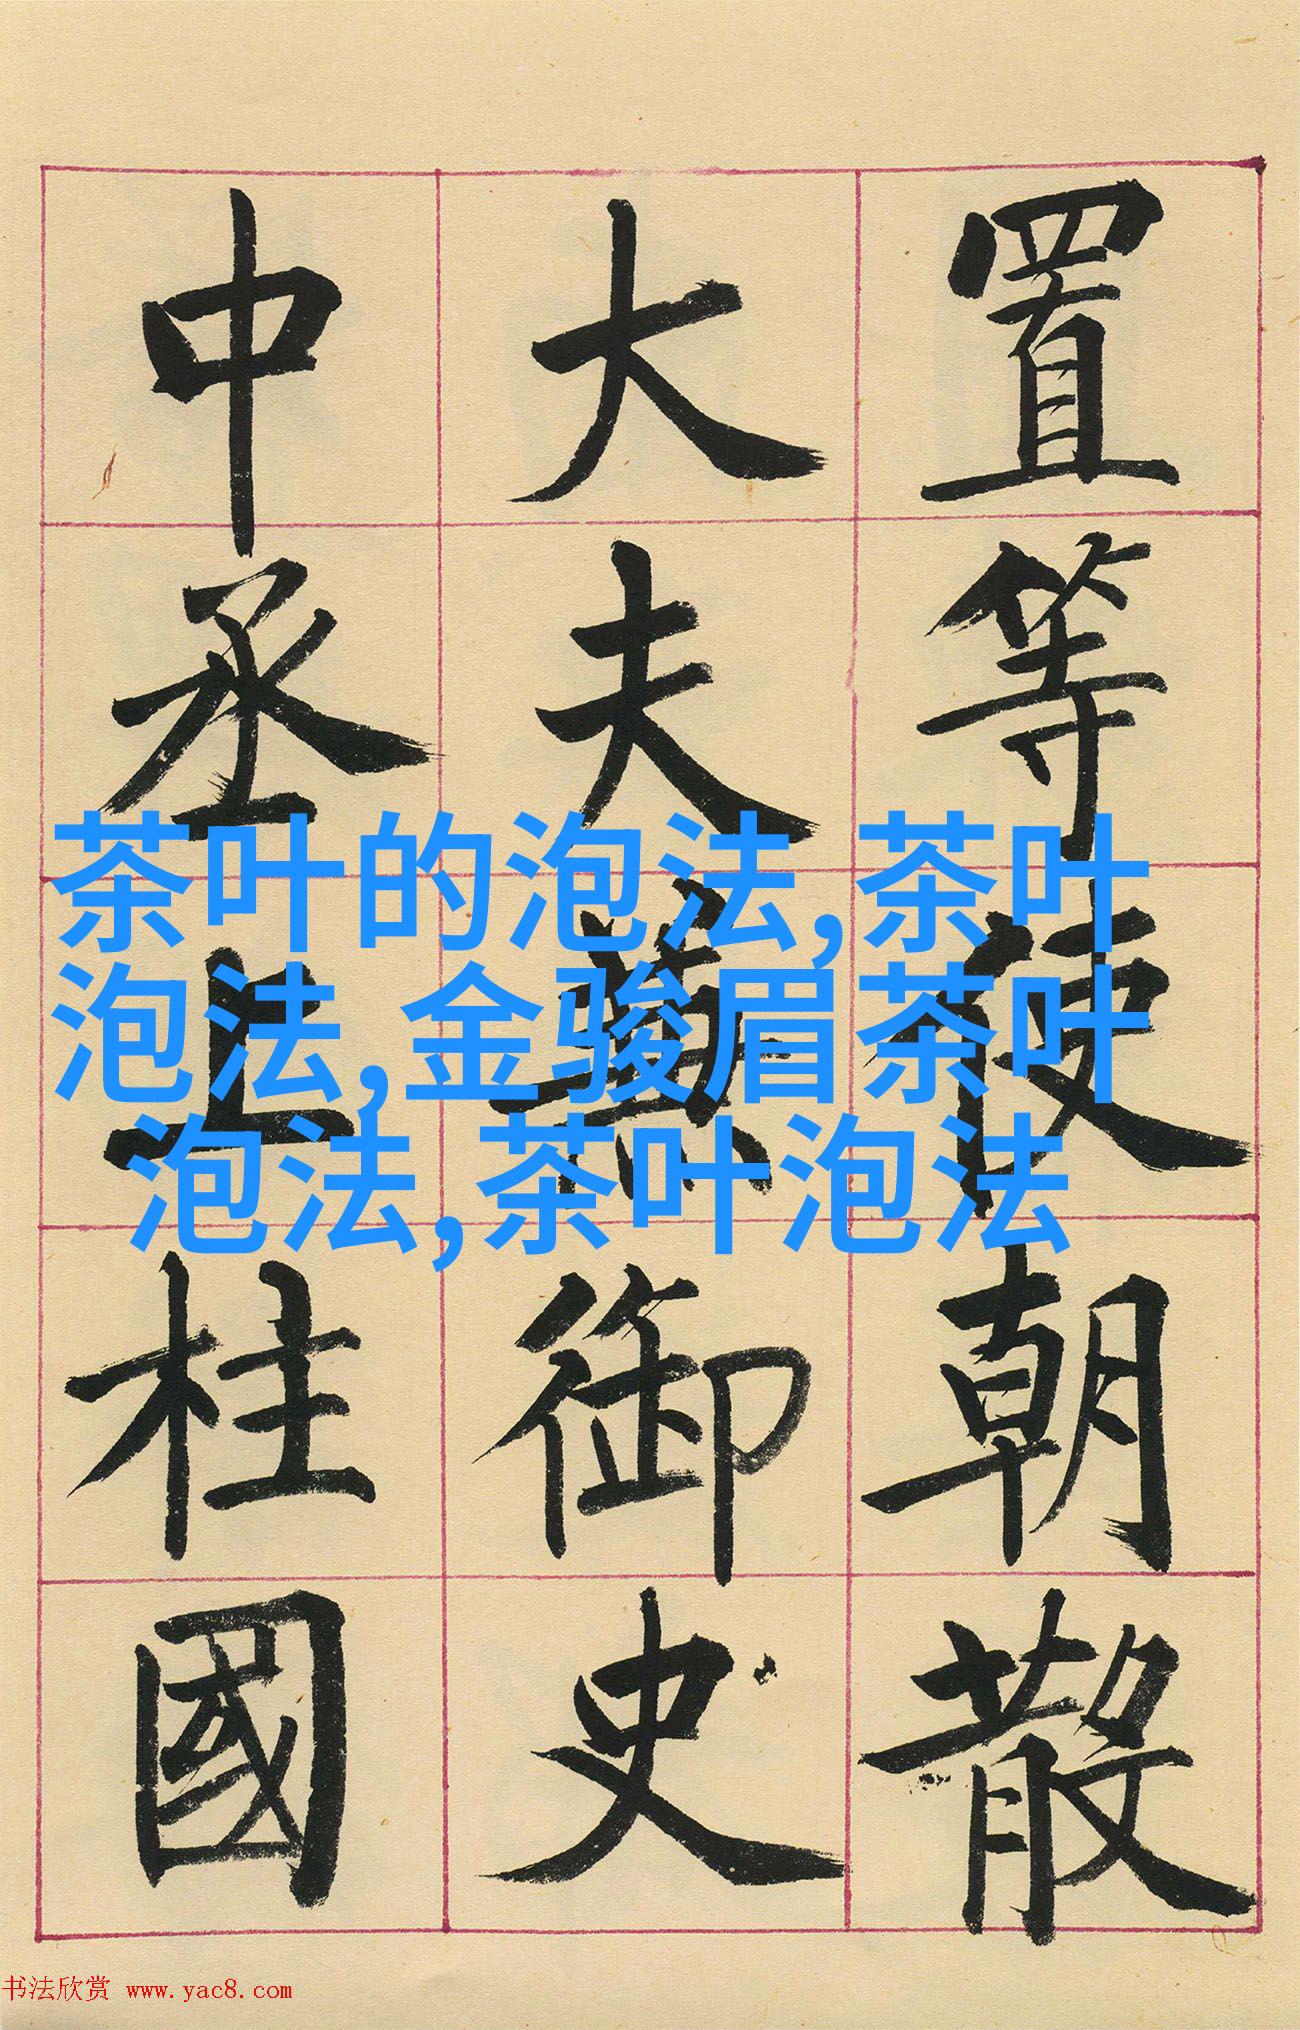 置等使朝散
大夫兼御史
中丞上柱國
茶叶的泡法,茶叶
泡法,金骏眉茶叶
泡法,茶叶泡法
书法欣赏 www.yac8.com